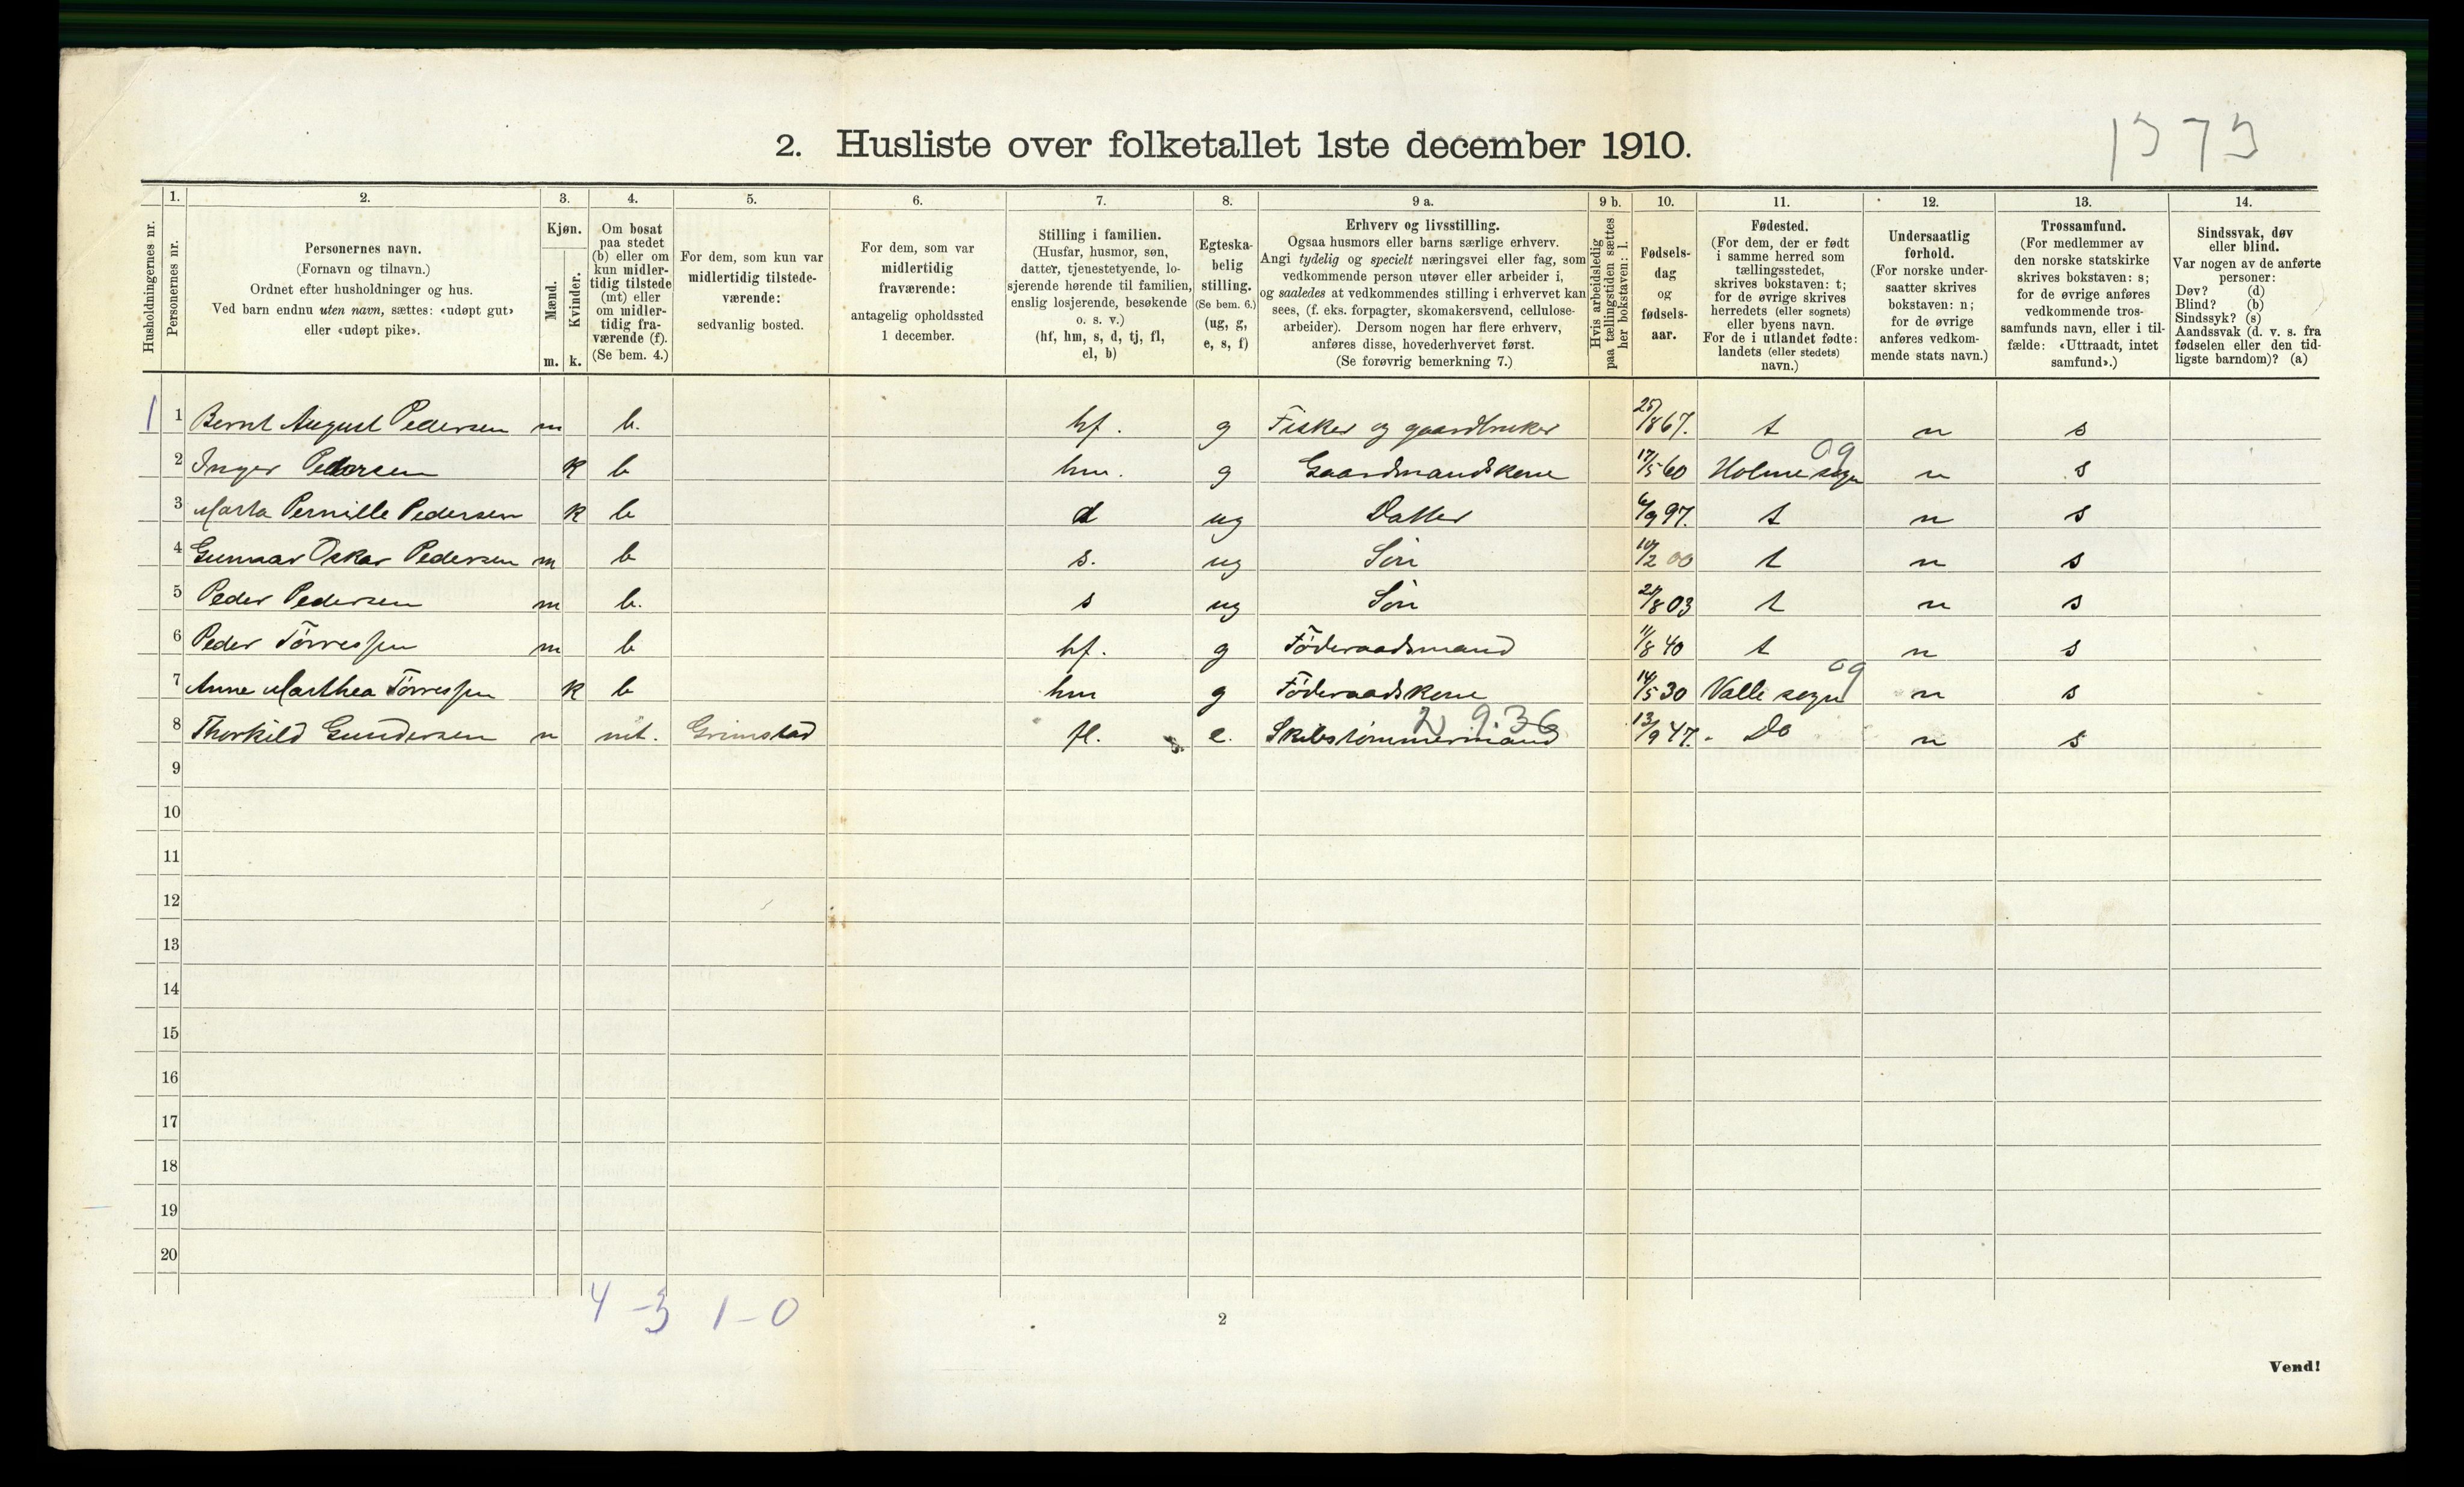 1575
2. Husliste over folketallet 1ste december 1910.
Husholdningernes nr.
1.
Personernes nr.
2.
Personernes navn.
(Fornavn og tilnavn.)
Ordnet efter husholdninger og hus.
Ved barn endnu uten navn, sættes: «udøpt gut»
eller «udøpt pike».
3.
Kjøn.
Mænd.
Kvinder.
m. k.
4.
Om bosat
paa stedet
(b) eller om
kun midler-
tidig tilstede
(mt) eller
om midler-
tidig fra-
værende (f).
(Se bem. 4.)
5.
For dem, som kun var
midlertidig tilstede-
værende:
sedvanlig bosted.
6.
For dem, som var
midlertidig
fraværende:
antagelig opholdssted
1 december.
7.
Stilling i familien.
(Husfar, husmor, søn,
datter, tjenestetyende, lo-
sjerende hørende til familien,
enslig losjerende, besøkende
o. s. v.)
(hf, hm, s, d, tj, fl,
el, b)
8.
Egteska-
belig
stilling.
(Se bem. 6.)
(ug, g,
e, s, f)
9 a.
Erhverv og livsstilling.
Ogsaa husmors eller barns særlige erhverv.
Angi tydelig og specielt næringsvei eller fag, som
vedkommende person utøver eller arbeider i,
og saaledes at vedkommendes stilling i erhvervet kan
sees, (f. eks. forpagter, skomakersvend, cellulose-
arbeider). Dersom nogen har flere erhverv,
anføres disse, hovederhvervet først.
(Se forøvrig bemerkning 7.)
9 b.
Hvis arbeidsledig
paa tællingstiden sættes
her bokstaven: l.
10.
Fødsels-
dag
og
fødsels-
aar.
11.
Fødested.
(For dem, der er født
i samme herred som
tællingsstedet,
skrives bokstaven: t;
for de øvrige skrives
herredets (eller sognets)
eller byens navn.
For de i utlandet fødte:
landets (eller stedets)
navn.)
12.
Undersaatlig
forhold.
(For norske under-
saatter skrives
bokstaven: n;
for de øvrige
anføres vedkom-
mende stats navn.)
13.
Trossamfund.
(For medlemmer av
den norske statskirke
skrives bokstaven: s;
for de øvrige anføres
vedkommende tros-
samfunds navn, eller i til-
fælde: «Uttraadt, intet
samfund».)
14.
Sindssvak, døv
eller blind.
Var nogen av de anførte
personer:
Døv? (d)
Blind? (b)
Sindssyk? (s)
Aandssvak (d. v. s. fra
fødselen eller den tid-
ligste barndom)? (a)
1 1 Bernt August Pedersen m b. hf. g Fisker og gaardbruker 25/8 67. t n s
2 Inger Pedersen k b hm. g Gaardmandskone 17/5 60 Holme sogn 09 n s
3 Marta Pernille Pedersen k b d ug Datter 6/9 97. t n s
4 Gunnar Oskar Pedersen m b s. ug Søn 10/2 00 t n s
5 Peder Pedersen m b. s ug Søn 21/8 03 t n s
6 Peder Tørressen m b hf. g Föderaadsmand 11/8 40 t n s
7 Anne Marthea Tørressen k b hm g Föderaadskone 14/5 30 Valle sogn 09 n s
8 Thorkild Gundersen m mt. Grimstad fl. e. Skibstömmermand 29.36 13/9 47. Do n s
9
10
11
12
13
14
15
16
17
18
19
20
4-3 1-0
2
Vend!